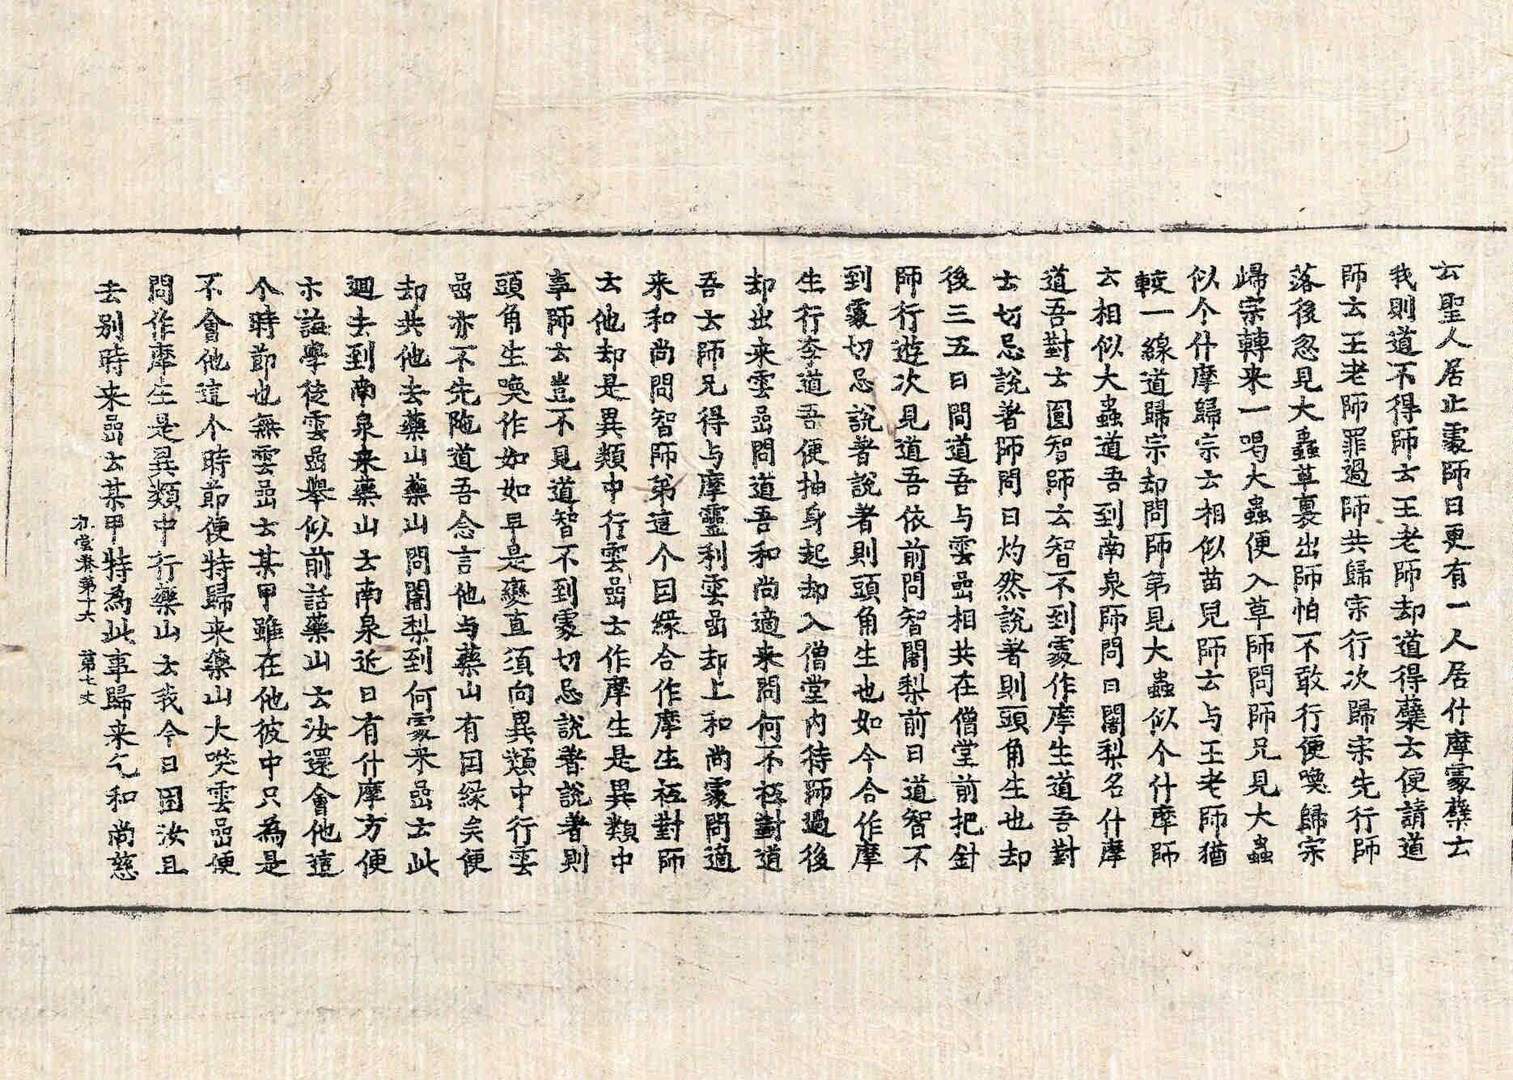 云聖人居止處師曰更有一人居什摩處蘗云
我則道不得師云王老師却道得蘗云便請道
師云王老師罪過師共歸宗行次歸宗先行師
落後忽見大蟲草裏出師怕不敢行便喚歸宗
歸宗轉来一喝大蟲便入草師問師兄見大蟲
似个什摩歸宗云相似苗兒師云与王老師猶
較一線道歸宗却問師弟見大蟲似个什摩師
云相似大蟲道吾到南泉師問曰闍梨名什摩
道吾對云圎智師云智不到處作摩生道吾對
云切忌說著師問曰灼然說著則頭角生也却
後三五日間道吾与雲嵒相共在僧堂前把針
師行遊次見道吾依前問智闍梨前日道智不
到處切忌說著說著則頭角生也如今合作摩
生行李道吾便抽身起却入僧堂內待師過後
却出来雲嵒問道吾和尚適来問何不祗對道
吾云師兄得与摩靈利雲嵒却上和尚處問適
来和尚問智師弟這个因緣合作摩生祗對師
云他却是異類中行雲嵒云作摩生是異類中
事師云豈不見道智不到處切忌說著說著則
頭角生喚作如如早是變直須向異類中行雲
嵒亦不先陁道吾念言他与藥山有因緣矣便
却共他去藥山藥山問闍梨到何處来嵒云此
迴去到南泉来藥山云南泉近日有什摩方便
示誨學徒雲嵒舉似前話藥山云汝還會他這
个時節也無雲嵒云某甲雖在他彼中只為是
不會他這个時節便特歸来藥山大咲雲嵒便
問作摩生是異類中行藥山云我今日困汝且
去別時来嵒云某甲特為此事歸来乞和尚慈
卷第十六 第七丈